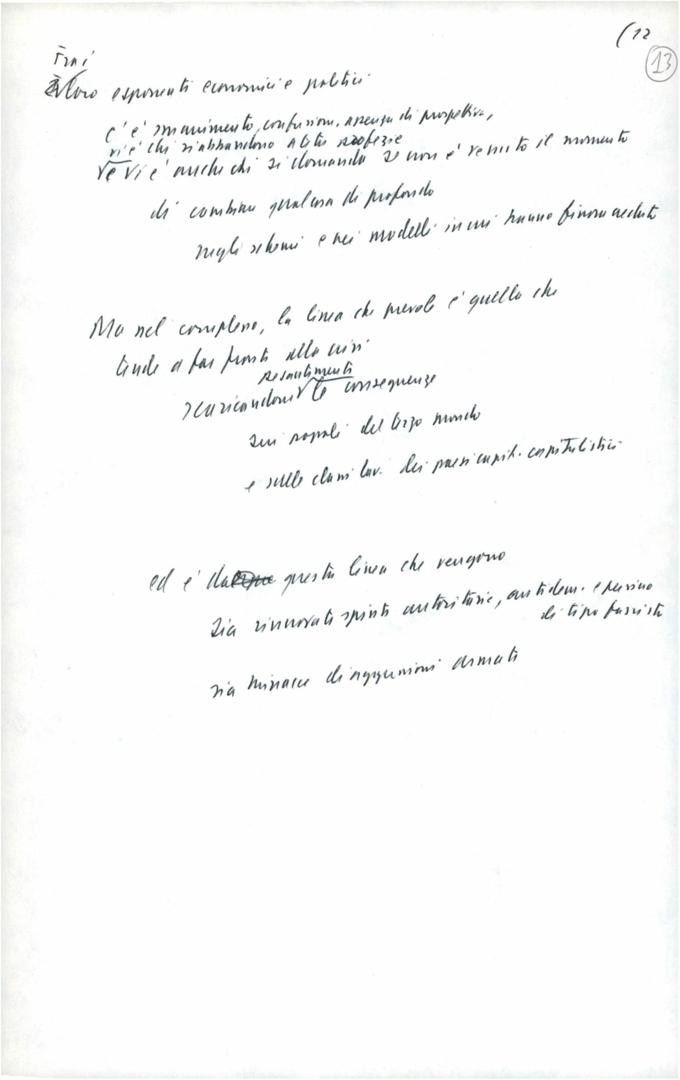 (12
13
Fra i
loro esponenti economici e politici
c'è smarrimento, confusione, assenza di prospettive,
vi è chi s'abbandona a tetre profezie
e vi è anche chi si domanda se non è venuto il momento
di cambiare qualcosa di profondo
negli schemi e nei modelli in cui hanno finora creduto
Ma nel complesso, la linea che prevale è quella che
tende a far fronte alla crisi
scaricandone
pesantemente
le conseguenze
sui popoli del terzo mondo
e sulle classi lav. dei paesi capit. capitalistici
ed è da questa linea che vengono
sia rinnovate spinte autoritarie, antidem. e persino
di tipo fascista
sia minacce di aggressioni armate